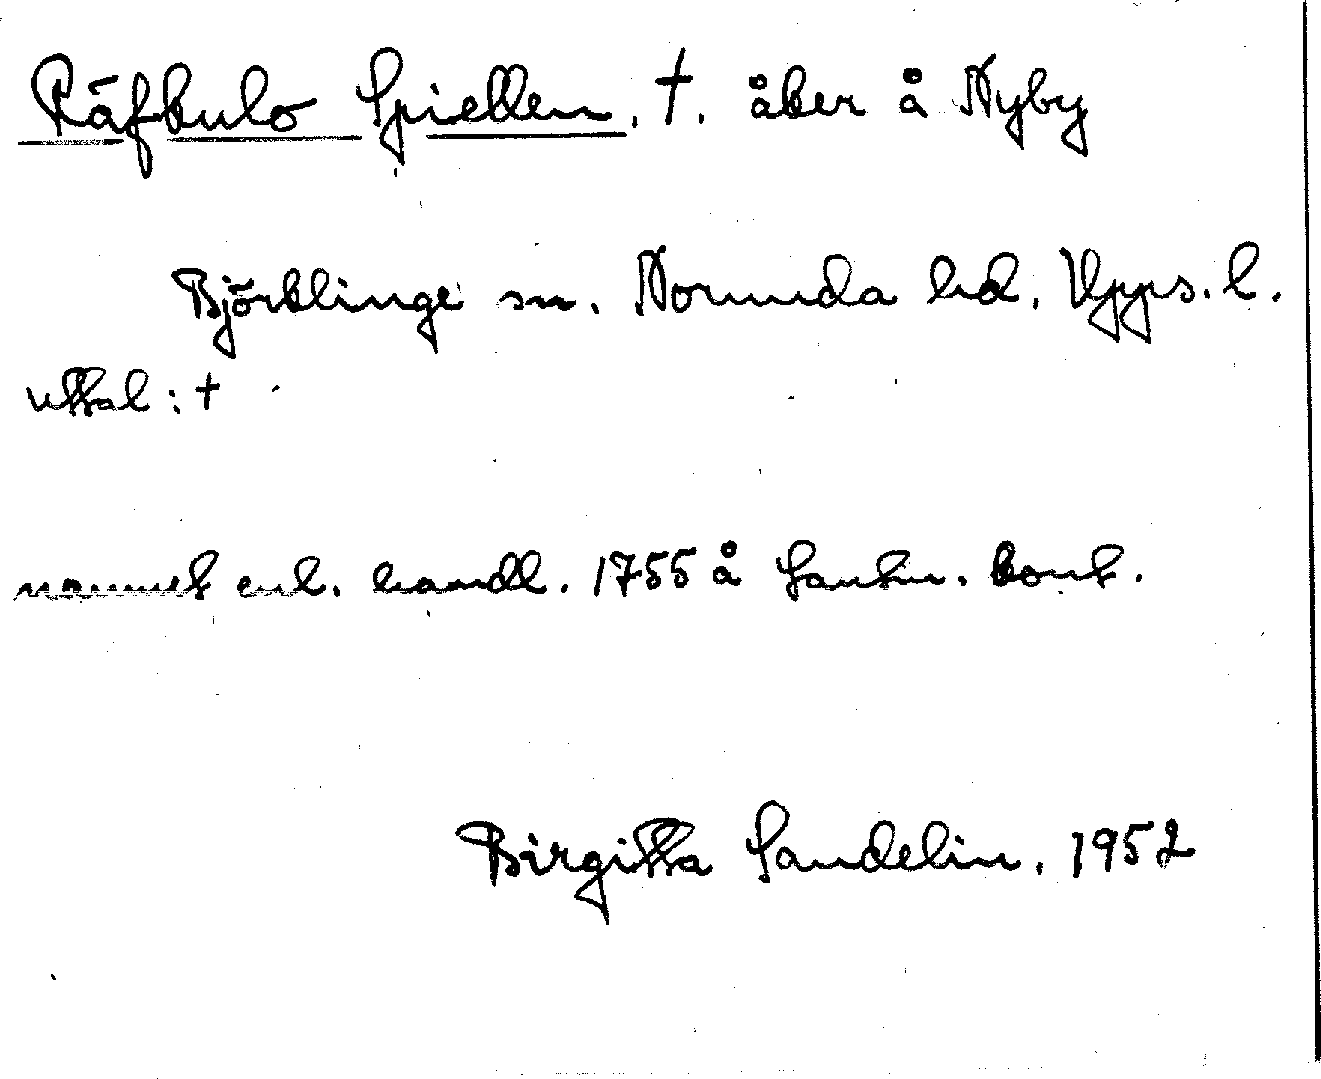 Räfkulo Spiellen. †. åker å Nyby
Björklinge sn. Norunda hd. Upps. l.
uttal: †
namnet enl. handl. 1755 å Lantm. kont.
Birgitta Sandelin. 1952